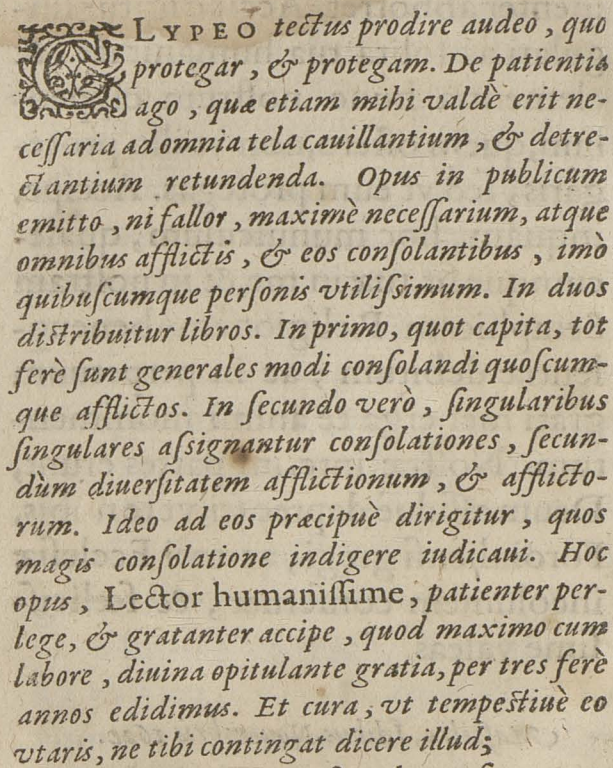 CLYPEO tectus prodire audeo, quo
protegar, & protegam. De patientia
ago, quæ etiam mihi valdè erit ne-
ceſſaria ad omnia tela cauillantium, & detre-
ctantium retundenda. Opus in publicum
emitto, ni fallor, maximè neceſſarium, atque
omnibus afflictis, & eos conſolantibus, imò
quibuſcumque perſonis vtiliſſimum. In duos
diſtribuitur libros. In primo, quot capita, tot
ferè ſunt generales modi conſolandi quoſcum-
que afflictos. In ſecundo verò, ſingularibus
ſingulares aſsignantur conſolationes, ſecun-
dùm diuerſitatem afflictionum, & afflicto-
rum. Ideo ad eos præcipuè dirigitur, quos
magis conſolatione indigere iudicaui. Hoc
opus, Lector humaniſſime, patienter per-
lege, & gratanter accipe, quod maximo cum
labore, diuina opitulante gratia, per tres ferè
annos edidimus. Et cura, vt tempeſtiuè eo
vtaris, ne tibi contingat dicere illud;